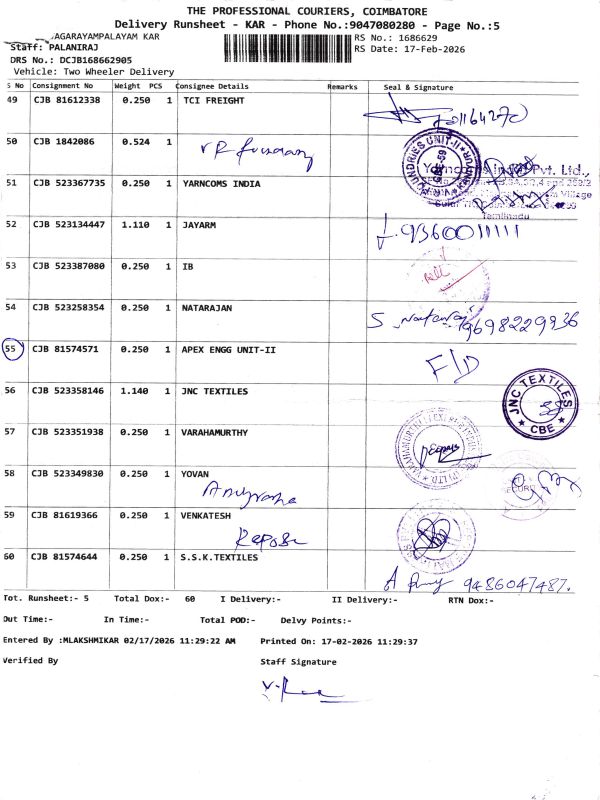 THE PROFESSIONAL COURIERS, COIMBATORE
Delivery Runsheet - KAR - Phone No.:9047080280 - Page No.:5
AGARAYAMPALAYAM KAR
RS No.: 1686629
Staff: PALANIRAJ
RS Date: 17-Feb-2026
DRS No.: DCJB168662905
Vehicle: Two Wheeler Delivery
S No Consignment No Weight PCS Consignee Details Remarks Seal & Signature
49 CJB 81612338 0.250 1 TCI FREIGHT
50 CJB 1842086 0.524 1
51 CJB 523367735 0.250 1 YARNCOMS INDIA
Tamilnadu
52 CJB 523134447 1.110 1 JAYARM
9360011111
53 CJB 523387080 0.250 1 IB
54 CJB 523258354 0.250 1 NATARAJAN
S
9698229936
55 CJB 81574571 0.250 1 APEX ENGG UNIT-II
F/D
56 CJB 523358146 1.140 1 JNC TEXTILES
JNC TEXTILES
CBE
57 CJB 523351938 0.250 1 VARAHAMURTHY
58 CJB 523349830 0.250 1 YOVAN
59 CJB 81619366 0.250 1 VENKATESH
60 CJB 81574644 0.250 1 S.S.K.TEXTILES
9486047487.
Tot. Runsheet:- 5 Total Dox:- 60 I Delivery:- II Delivery:- RTN Dox:-
Out Time:- In Time:- Total POD:- Delvy Points:-
Entered By :MLAKSHMIKAR 02/17/2026 11:29:22 AM Printed On: 17-02-2026 11:29:37
Verified By Staff Signature